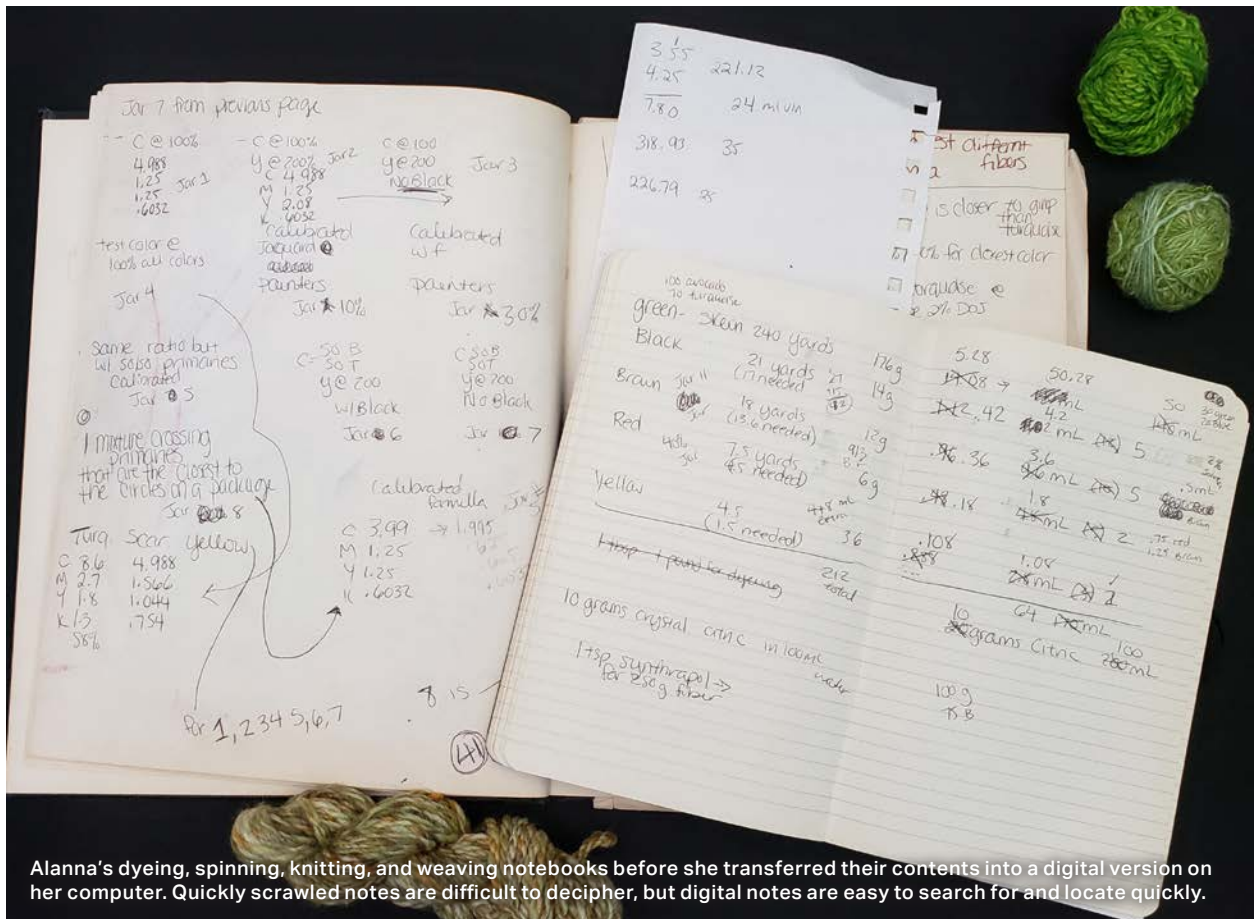 Jar 7 from previous page
C @ 100%
4.988
1.25
1.25 Jar 1
.6032
C @ 100%
Y @ 200% Jar 2
C 4.988
M 1.25
Y 2.08
K .6032
C @ 100
Y @ 200 Jar 3
No Black
test color @
100% all colors
Jar 4
Calibrated
Jaquard
painters
Jar 10%
Calibrated
W F
painters
Jar 30%
Same ratio but
w/ 50/50 primaries
Calibrated
Jar 5
C= 50 B
50 T
Y @ 200
w/Black
Jar 6
C 50 B
50 T
Y @ 200
No Black
Jar 7
1 mixture crossing
primaries
that are the closest to
the circles on a package
Jar 8
Turq. Scar. Yellow
C 8.6 4.988
M 2.7 1.566
Y 1.8 1.044
K 1.3 .754
58%
Calibrated
C 3.99 → 1.995
M 1.25
Y 1.25
K .6032
for 1, 2 3 4 5, 6, 7
8 is
41
3.55
4.25 221.12
7.80 24 m
318.93 35
226.79 35
test different
fibers
is closer to
than
turquoise
% for closest color
turquoise @
2% DOS
100 avocado
70 turquoise
green- skein 240 yards 176g
Black 21 yards 14g
(17 needed
Braun Jar 11 18 yards 12g
(13.6 needed)
Red 7.5 yards 6g
needed)
Yellow 4.5 36
(1.5 needed)
212
total
10 grams crystal citric in 100 mL
water
1 tsp synthrapol →
for 250 g fiber
5.28 50.28 50
mL mL
.42 4.2
mL 5
.36 3.6
mL 5 .5mL
.18 1.8
mL 2
.108 1.08
mL 1
64 mL
10 grams Citric 100 mL
100 g
Alanna's dyeing, spinning, knitting, and weaving notebooks before she transferred their contents into a digital version on
her computer. Quickly scrawled notes are difficult to decipher, but digital notes are easy to search for and locate quickly.